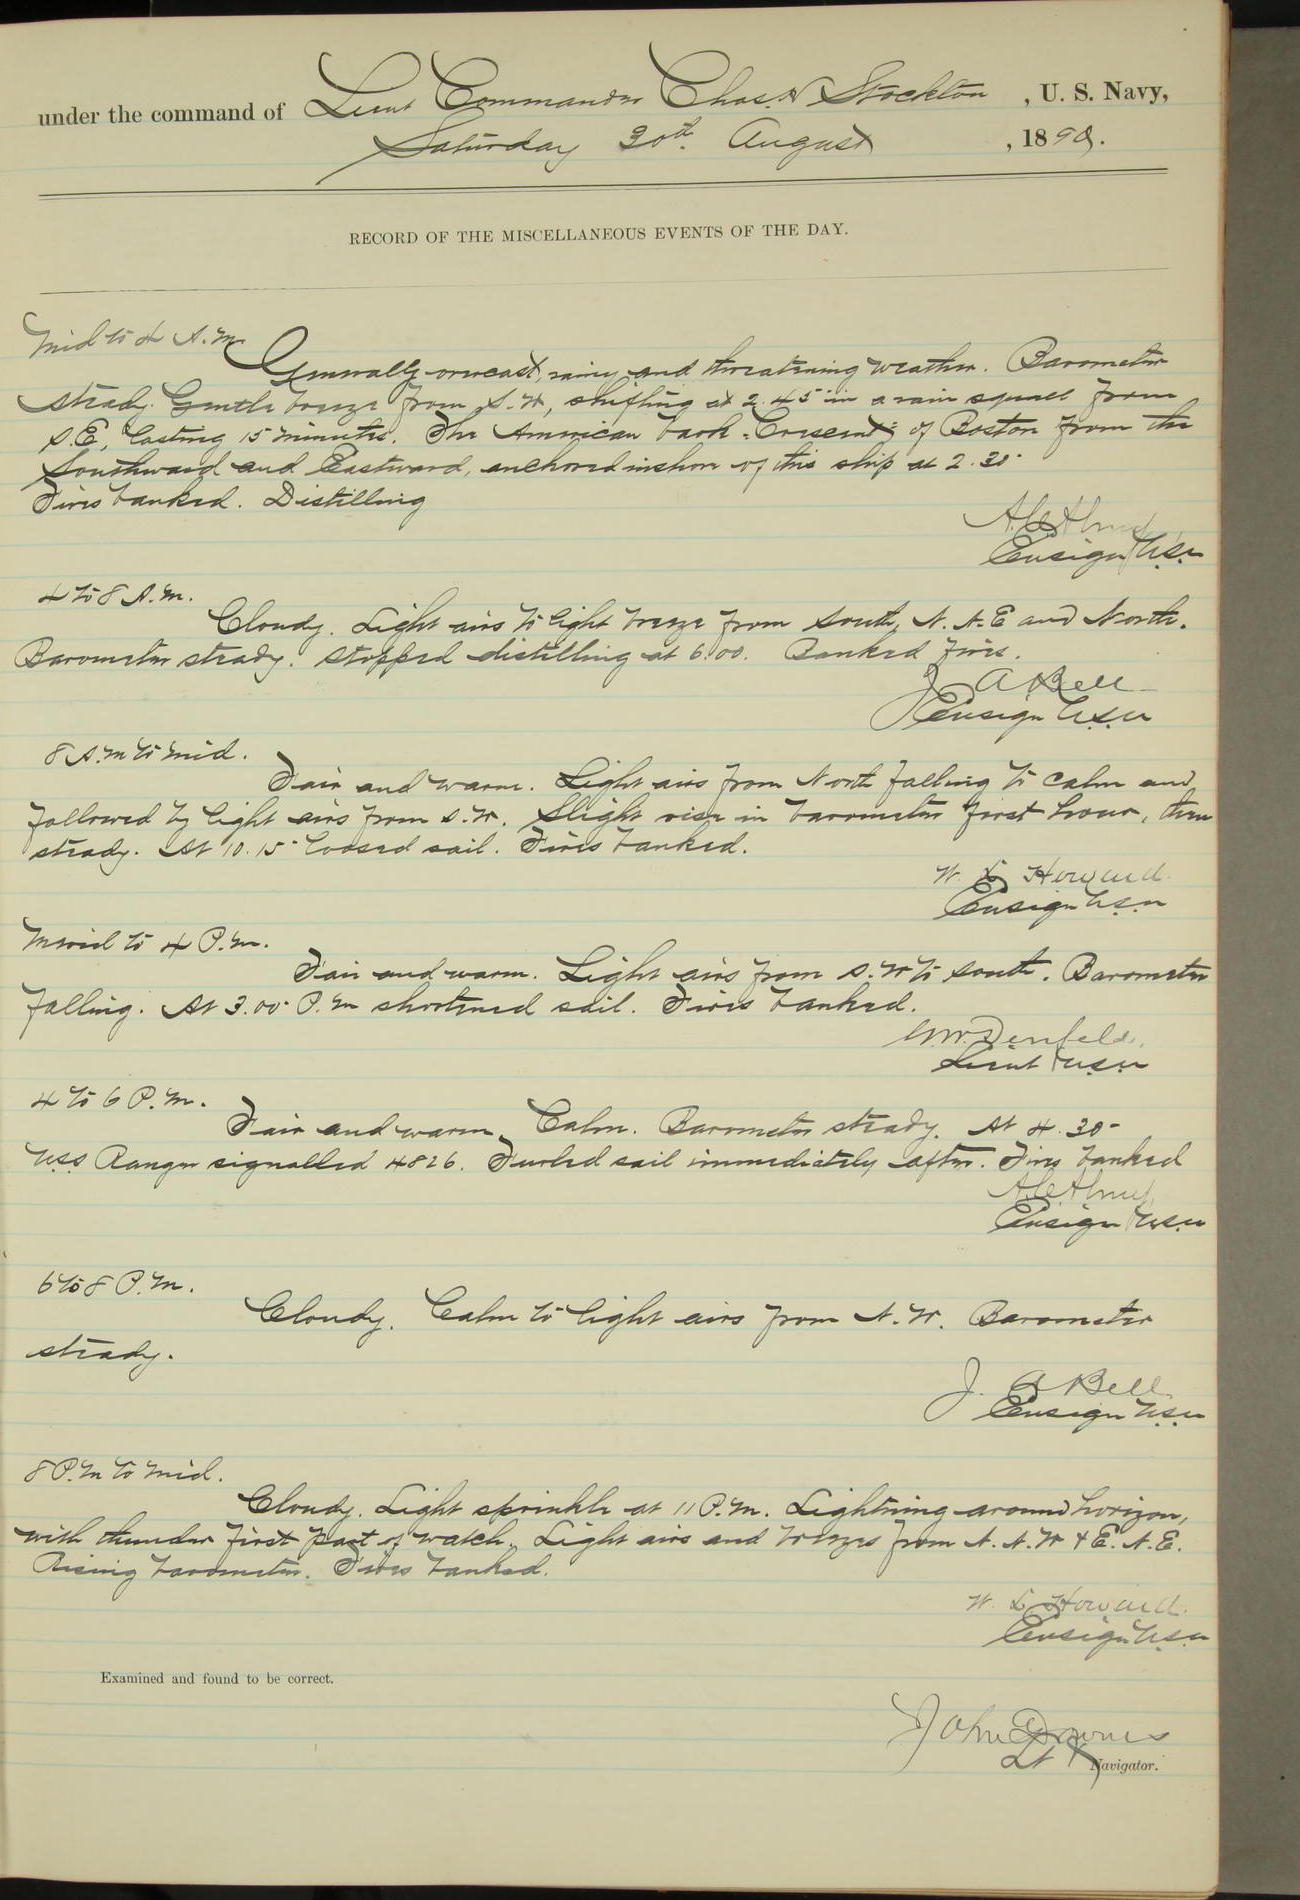 under the command of Lieut Commander Chas. H Stockton , U. S. Navy,
Saturday 30th. August , 1890.
RECORD OF THE MISCELLANEOUS EVENTS OF THE DAY.
Mid to 4 A.M.
Generally overcast, rainy and threatening weather. Barometer
steady. Gentle breeze from S.W, shifting at 2.45 in a rain squall from
S.E, lasting 15 minutes. The American bark "Crescent" of Boston from the
Southward and Eastward, anchored inshore of this ship at 2.30
Fires banked. Distilling
Ensign USN
4 to 8 A.M.
Cloudy. Light airs to light breeze from South, N.N.E and North.
Barometer steady. Stopped distilling at 6.00. Banked fires.
J. A Bell
Ensign USN
8 A.M to Mid.
Fair and warm. Light airs from North falling to calm and
followed by light airs from S.W. Slight rise in barometer first hour, then
steady. At 10.15 loosed sail. Fires banked.
W. L Howard
Ensign USN
Merid to 4 P.M.
Fair and warm. Light airs from S.W to South. Barometer
falling. At 3.00 P.M shortened sail. Fires banked.
Denfeld.
Lieut USN
4 to 6 P.M.
Fair and warm. Calm. Barometer steady. At 4.30
USS Ranger signalled 4826. Furled sail immediately after. Fires banked
Ensign USN
6 to 8 P.M.
Cloudy. Calm to light airs from N.W. Barometer
steady.
J. A Bell
Ensign USN
8 P.M to Mid.
Cloudy. Light sprinkle at 11 P.M. Lightning around horizon,
with thunder first part of watch. Light airs and breezes from N.N.W & E.N.E.
Rising barometer. Fires banked.
W. L Howard.
Ensign USN
Examined and found to be correct.
John Downes
Lt & Navigator.